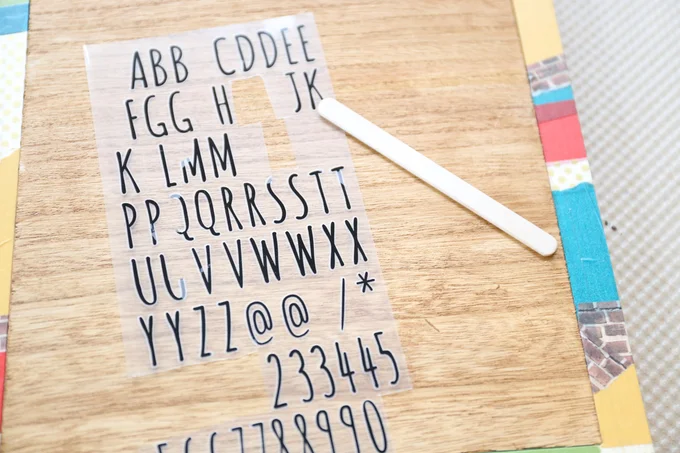 ABB CDDEE
FGG H JK
K LMM
PP QQRRSSTT
UUVVWWXX
YYZZ@@ /*
233445
7788990